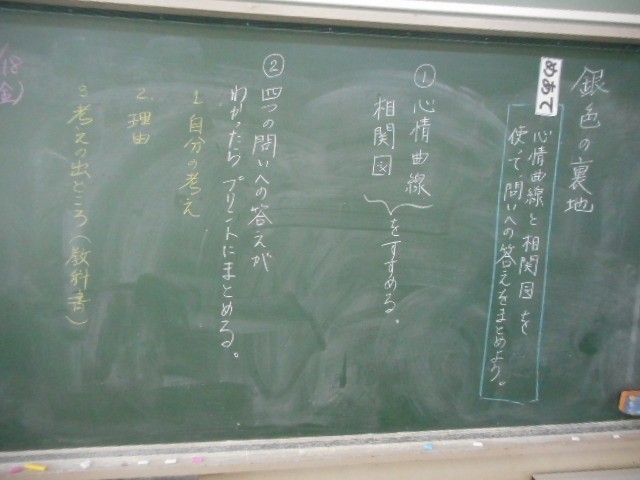 銀色の裏地
めあて
心情曲線と相関図を
使って、問いへの答えをまとめよう。
① 心情曲線
相関図
をすすめる。
② 四つの問いへの答えが
わかったらプリントにまとめる。
1. 自分の考え
2. 理由
3 考えの出どころ(教科書)
/18
金)